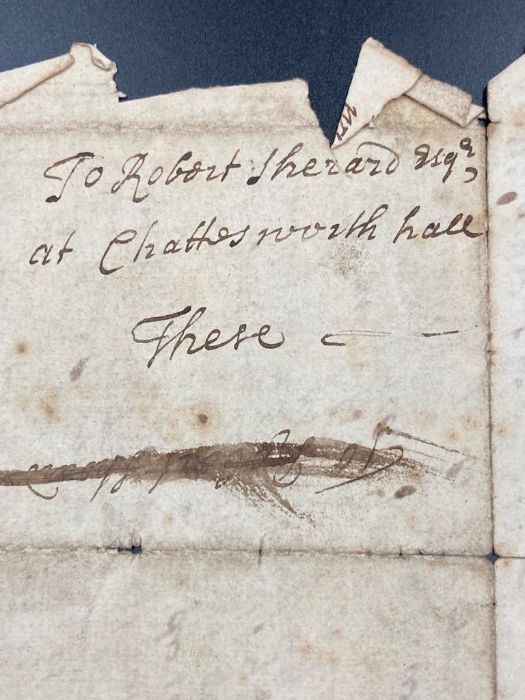 To Robert Sherard Esqr,
at Chattesworth hall
These